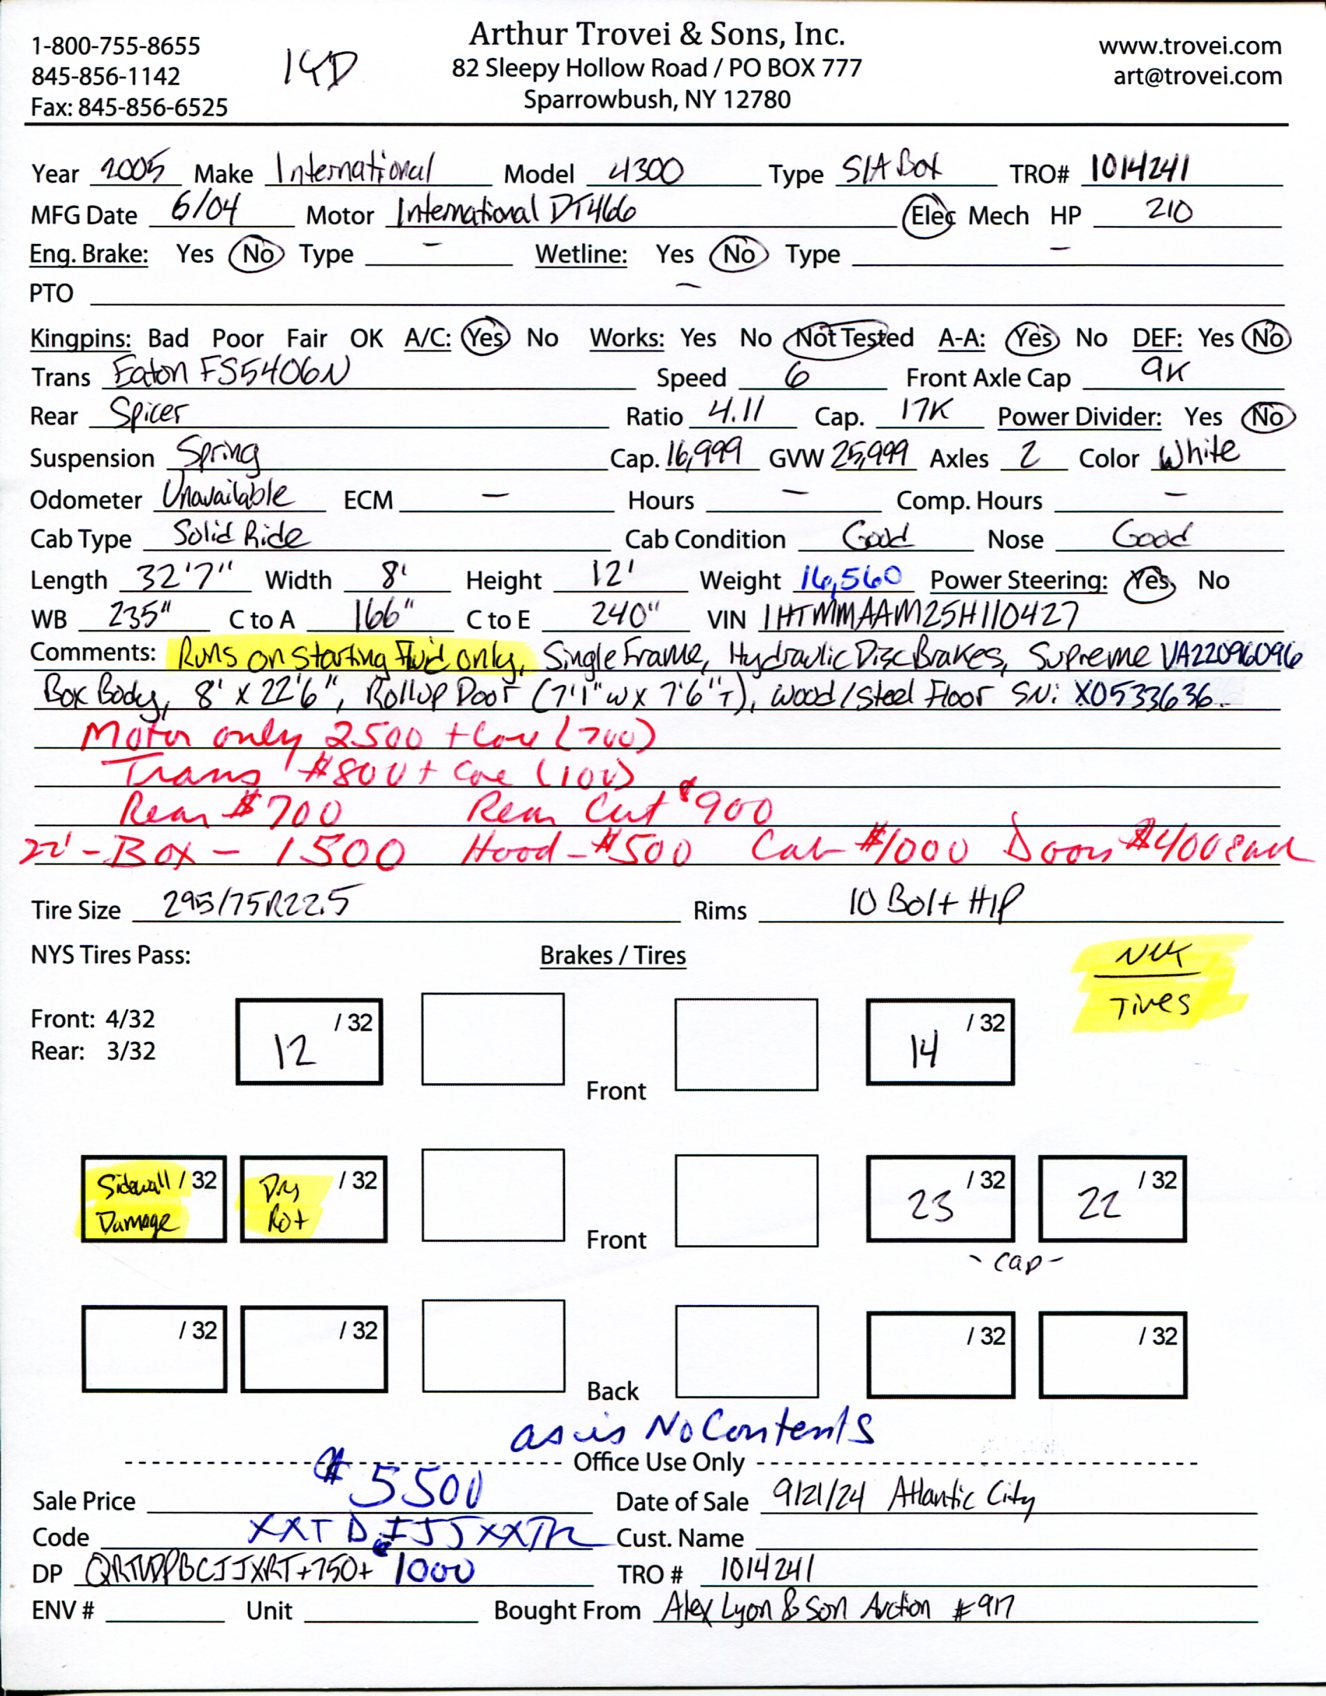 Arthur Trovei & Sons, Inc.
1-800-755-8655 82 Sleepy Hollow Road / PO BOX 777 www.trovei.com
845-856-1142 14D Sparrowbush, NY 12780 art@trovei.com
Fax: 845-856-6525
Year 2005 Make International Model 4300 Type S/A Box TRO# 1014241
MFG Date 6/04 Motor International DT466 Elec Mech HP 210
Eng. Brake: Yes No Type - Wetline: Yes No Type -
PTO -
Kingpins: Bad Poor Fair OK A/C: Yes No Works: Yes No Not Tested A-A: Yes No DEF: Yes No
Trans Eaton FS5406N Speed 6 Front Axle Cap 9K
Rear Spicer Ratio 4.11 Cap. 17K Power Divider: Yes No
Suspension Spring Cap. 16,999 GVW 25,999 Axles 2 Color White
Odometer Unavailable ECM - Hours - Comp. Hours -
Cab Type Solid Ride Cab Condition Good Nose Good
Length 32'7" Width 8' Height 12' Weight 16,560 Power Steering: Yes No
WB 235" C to A 166" C to E 240" VIN 1HTMMAAM25H110427
Comments: Runs on starting fluid only, Single Frame, Hydraulic Disc Brakes, Supreme VA22096096
Box Body, 8' x 22'6", Rollup Door (7'1"W x 7'6"T), Wood/Steel Floor SN: X0533636
Motor only 2500 + Core (700)
Trans $800 + Core (100)
Rear $700 Rear Cut $900
22' - Box - 1500 Hood - $500 Cab $1000 Doors $400 each
Tire Size 295/75R22.5 Rims 10 Bolt HP
NYS Tires Pass: Brakes / Tires
Tires
Front: 4/32 12 /32 14 /32
Rear: 3/32
Front
Sidewall Damage /32 Dry Rot /32 23 /32 22 /32
Front - cap -
/32 /32 /32 /32
Back
as is No Contents
Office Use Only
Sale Price $5500 Date of Sale 9/21/24 Atlantic City
Code Cust. Name
DP +750+ 1000 TRO # 1014241
ENV # Unit Bought From Alex Lyon & Son Auction #917